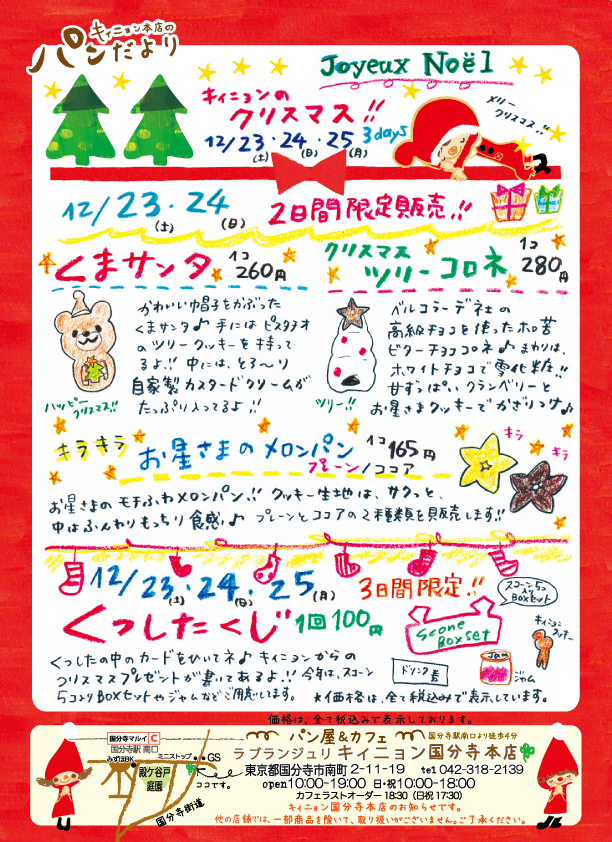 キィニョン本店の
パンだより
Joyeux Noël
キィニョンの
クリスマス!!
12/23・24・25 3days
(土) (日) (月)
メリー
クリスマス!!
12/23・24 2日間限定販売!!
(土) (日)
くまサンタ 1コ 260円
かわいい帽子をかぶった
くまサンタ♪ 手にはピスタチオ
のツリークッキーを持って
るよ!! 中には、とろ〜り
自家製カスタードクリームが
たっぷり入ってるよ!!
ハッピー
クリスマス!!
クリスマス
ツリーコロネ 1コ 280円
ベルコラーデ社の
高級チョコを使ったホロ苦
ビターチョココロネ♪まわりは、
ホワイトチョコで雪化粧!!
甘ずっぱいクランベリーと
お星さまクッキーでかざりつけ♪
ツリー!!
キラキラ お星さまのメロンパン 1コ 165円
プレーン/ココア
キラ
キラ
お星さまのモチふわメロンパン!! クッキー生地は、サクっと、
中はふんわりもっちり食感♪ プレーンとココアの2種類を販売します!!
12/23・24・25 3日間限定!!
(土) (日) (月)
くつしたくじ 1回100円
スコーン5コ
入り
BOXセット
Scone
Box set
キィニョン
クッキー
ドリンク券
Jam
ジャム
くつしたの中のカードをひいてネ♪ キィニョンからの
クリスマスプレゼントが書いてあるよ!! 今年は、スコーン
5コ入りBOXセットやジャムなどご用意してます。 ★価格は、全て税込みで表示しています。
価格は、全て税込みで表示しております。
国分寺マルイ C
国分寺駅 南口
みずほBK
ミニストップ
GS
殿ケ谷戸
庭園
ココです。
国分寺街道
パン屋&カフェ 国分寺駅南口より徒歩4分
ラ ブランジュリ キィニョン 国分寺本店
東京都国分寺市南町 2-11-19 tel 042-318-2139
open10:00-19:00 日・祝10:00-18:00
カフェラストオーダー 18:30 (日祝 17:30)
キィニョン国分寺本店のお知らせです。
他の店舗では、一部商品を除いて、取り扱いがございません。ご了承ください。